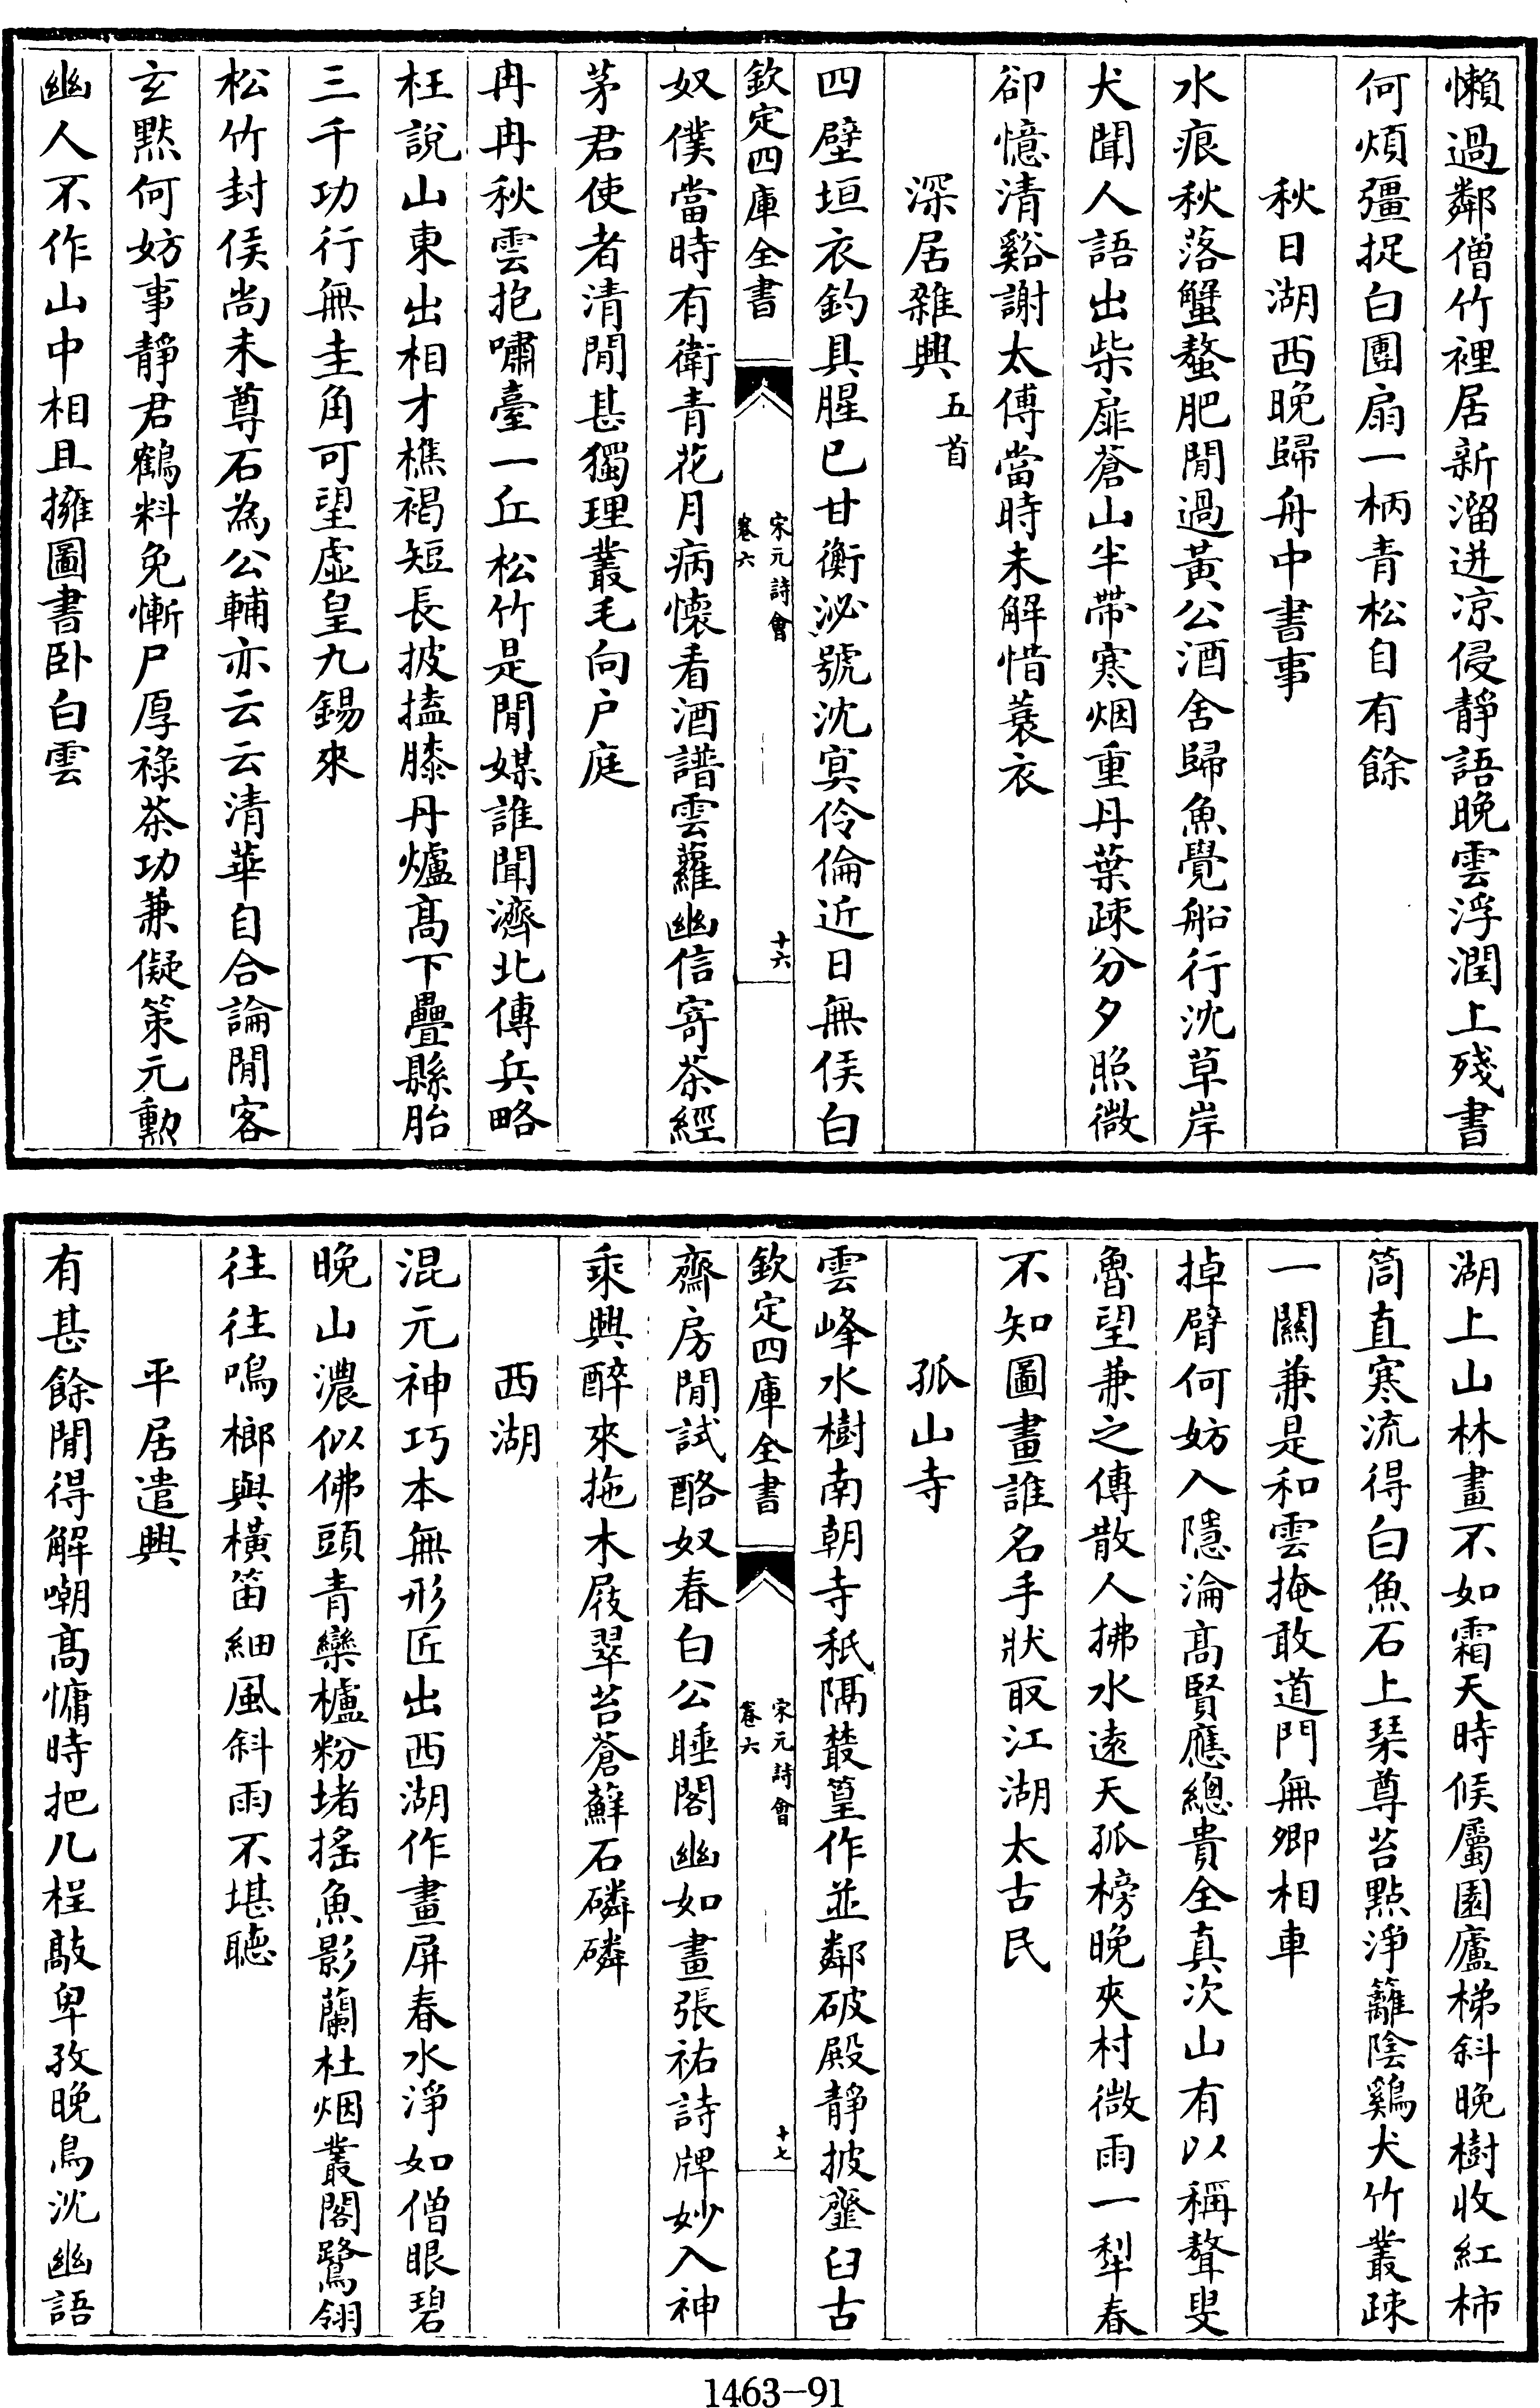 懶過鄰僧竹裡居新溜迸凉侵靜語晚雲浮潤上殘書
何煩彊捉白團扇一柄青松自有餘
秋日湖西晚歸舟中書事
水痕秋落蟹螯肥閒過黃公酒舍歸魚覺船行沈草岸
犬聞人語出柴扉蒼山半帶寒烟重丹葉疎分夕照微
卻憶清谿謝太傅當時未解惜蓑衣
深居雜興五首
四壁垣衣釣具腥已甘衡泌號沈冥伶倫近日無侯白
欽定四庫全書
宋元詩會
卷六
十六
奴僕當時有衛青花月病懷看酒譜雲蘿幽信寄茶經
茅君使者清閒甚獨理叢毛向户庭
冉冉秋雲抱嘯臺一丘松竹是閒媒誰聞濟北傳兵略
枉說山東出相才樵褐短長披搕膝丹爐髙下疊縣胎
三千功行無圭角可望虛皇九錫來
松竹封侯尚未尊石為公輔亦云云清華自合論閒客
玄黙何妨事靜君鶴料免慚尸厚祿茶功兼儗策元勲
幽人不作山中相且擁圖書卧白雲
湖上山林畫不如霜天時候屬園廬梯斜晚樹收紅柿
筒直寒流得白魚石上琴尊苔點淨籬陰鷄犬竹叢疎
一關兼是和雲掩敢道門無卿相車
掉臂何妨入隱淪髙賢應總貴全真次山有以稱聱叟
魯望兼之傳散人拂水遠天孤榜晚夾村微雨一犁春
不知圖畫誰名手狀取江湖太古民
孤山寺
雲峰水樹南朝寺秖隔叢篁作並鄰破殿靜披虀臼古
欽定四庫全書
宋元詩會
卷六
十七
齋房閒試酪奴春白公睡閣幽如畫張祐詩牌妙入神
乘興醉來拖木屐翠苔蒼蘚石磷磷
西湖
混元神巧本無形匠出西湖作畫屏春水淨如僧眼碧
晚山濃似佛頭青欒櫨粉堵搖魚影蘭杜烟叢閣鷺翎
往往鳴榔與橫笛細風斜雨不堪聽
平居遣興
有甚餘閒得解嘲髙慵時把几桯敲卑孜晚鳥沈幽語
1463-91